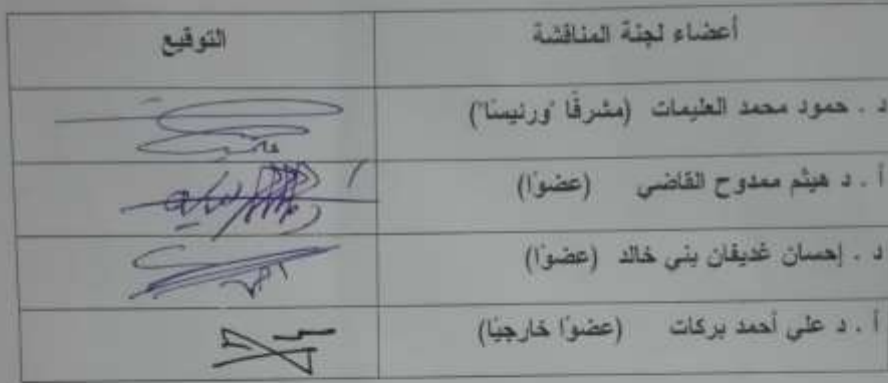 أعضاء لجنة المناقشة التوقيع
د . حمود محمد العليمات (مشرفًا "ورئيسًا")
أ . د هيثم ممدوح القاضي (عضوًا)
د . إحسان غديفان بني خالد (عضوًا)
أ . د علي أحمد بركات (عضوًا خارجيًا)